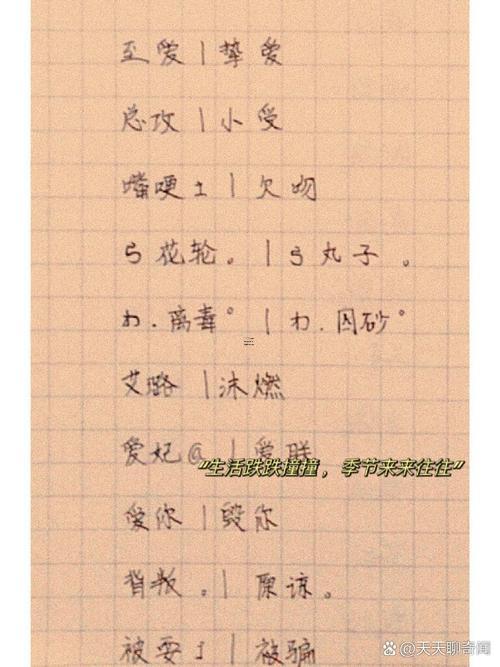 至爱 | 挚爱
总攻 | 小受
嘴哽士 | 欠吻
弓花轮。 | 弓丸子。
か.离毒° | か.囚砂°
艾璐 | 沐燃
爱妃@ | 爱朕
“生活跌跌撞撞，季节来来往往”
爱你 | 毁你
背叛。 | 原谅。
被耍士 | 被骗
@天天聊奇闻